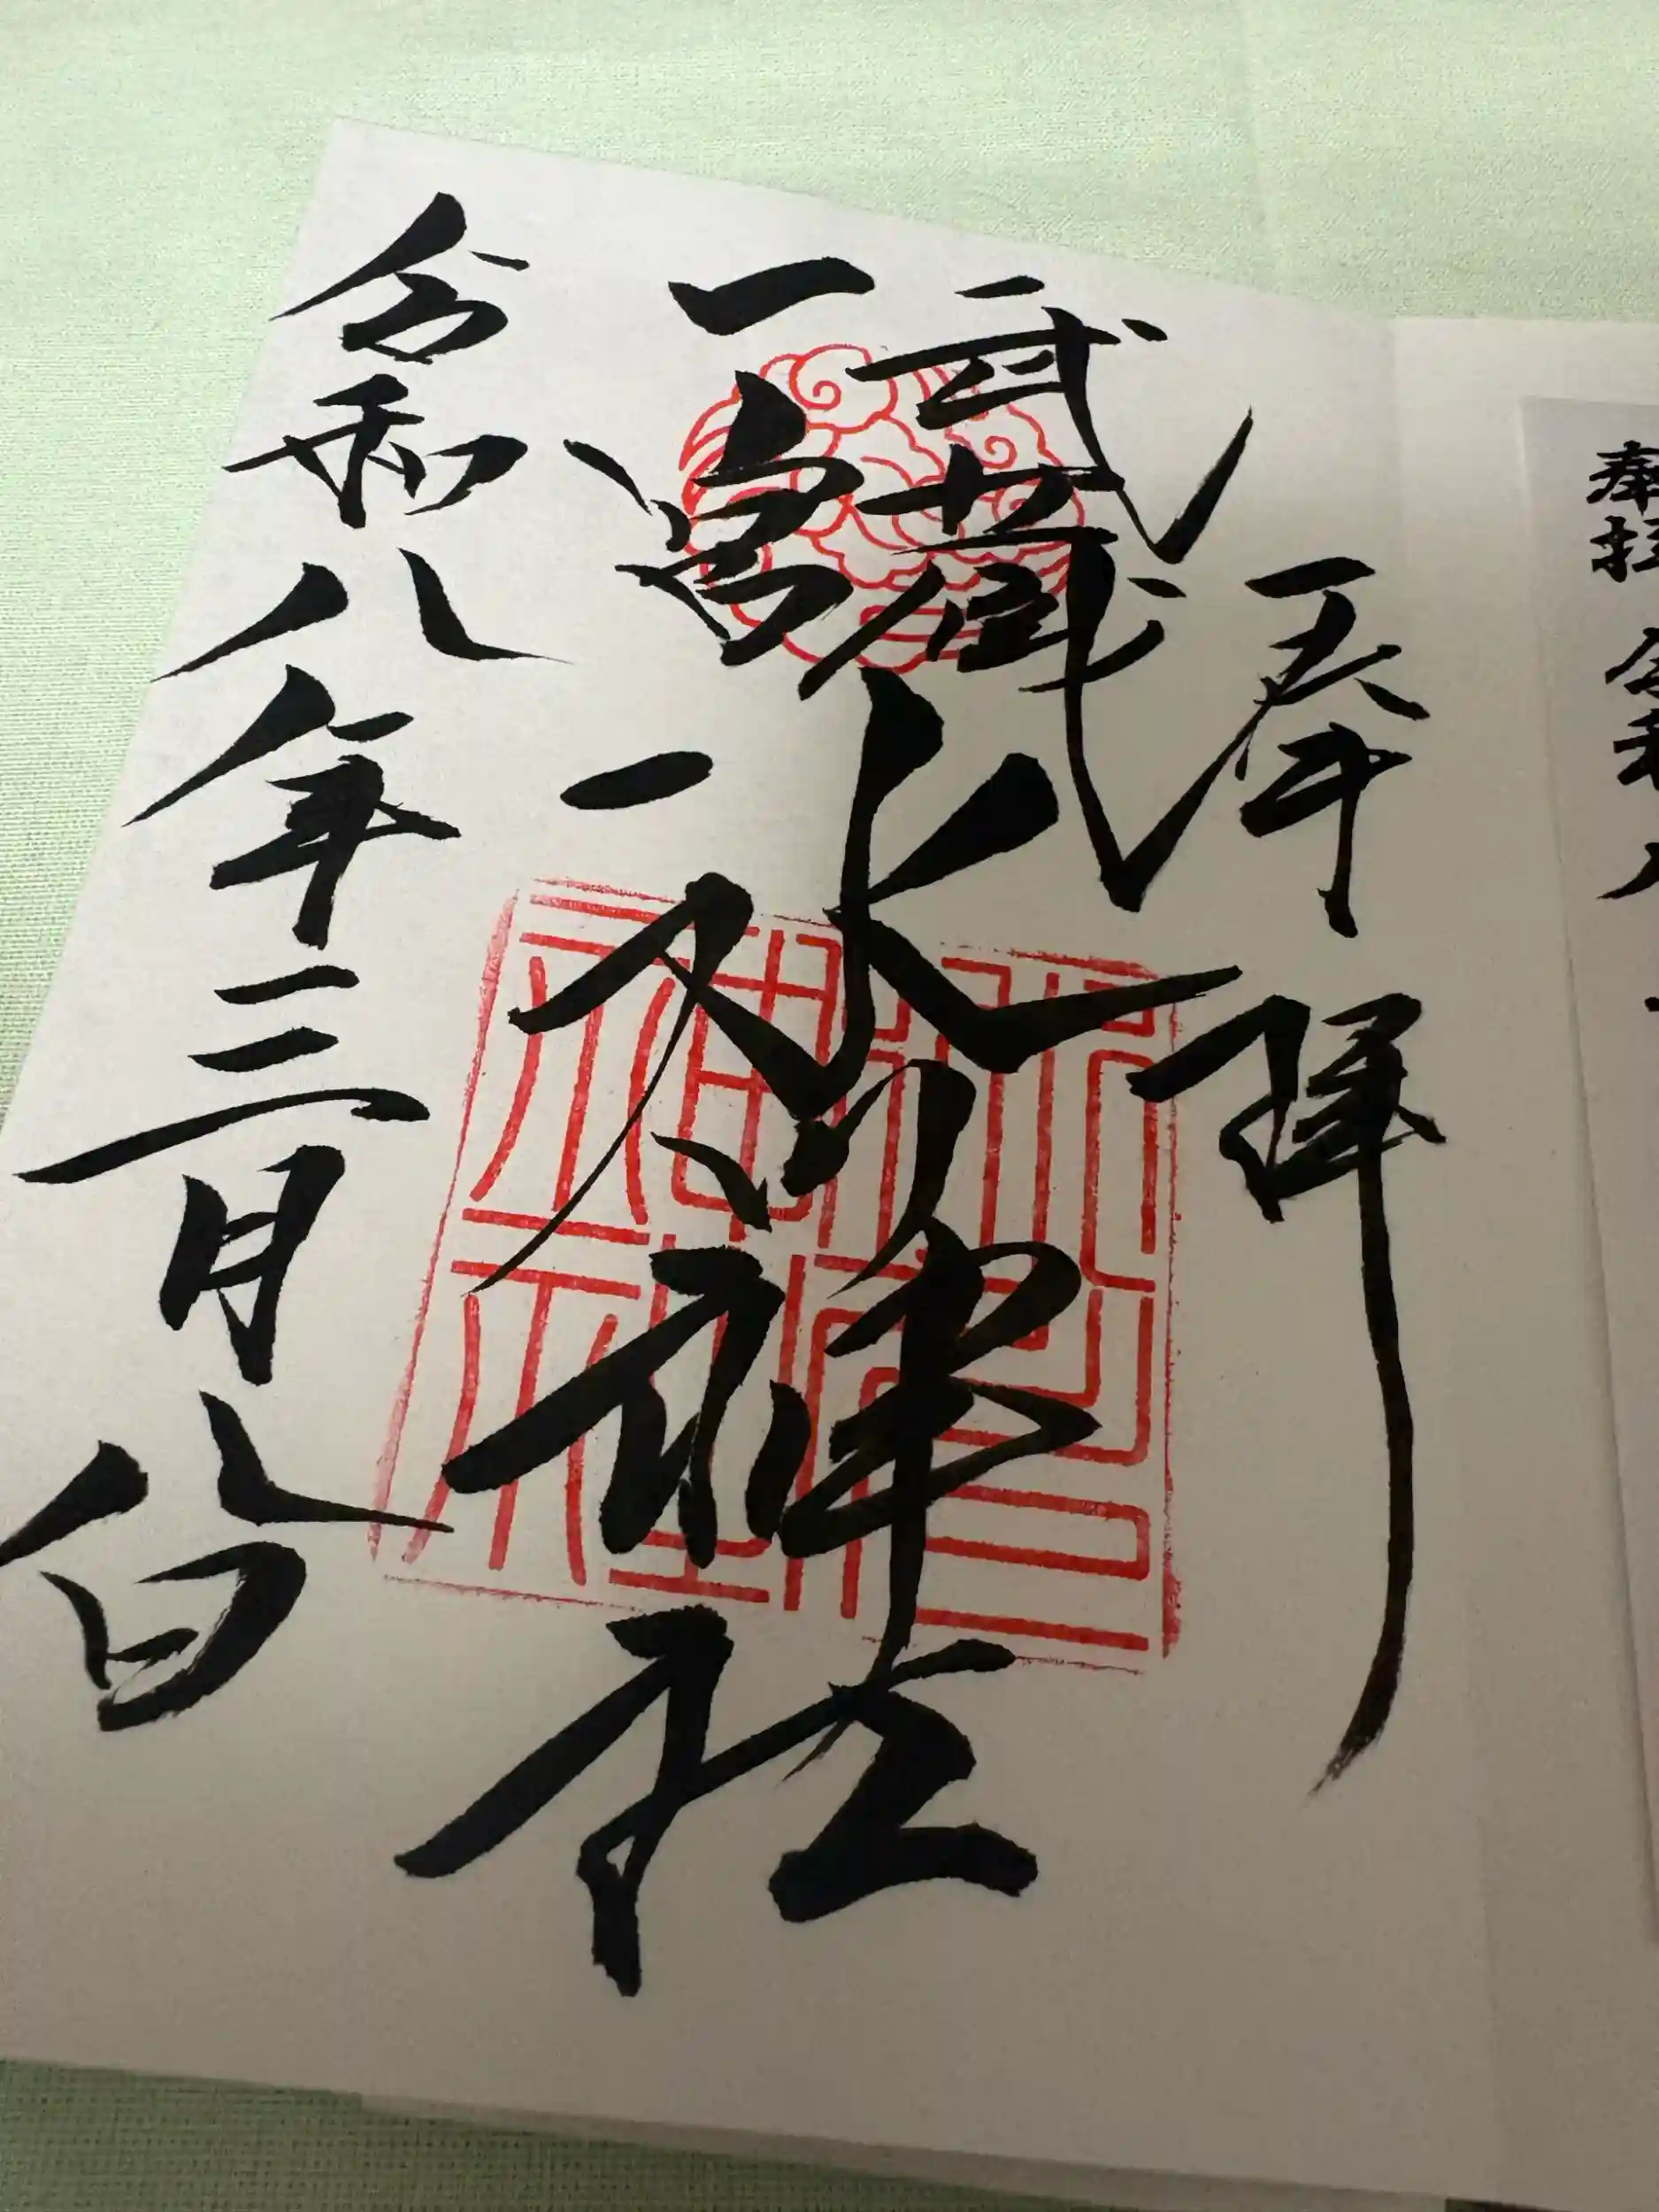 奉拝
武蔵
一宮
氷川神社
令和八年三月八日
奉拝 令和